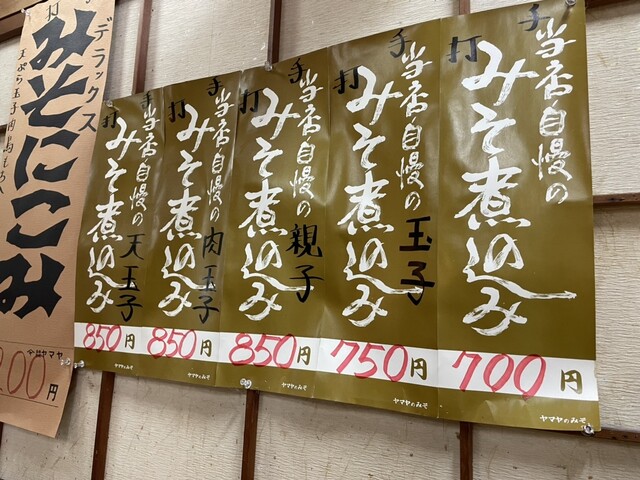 手打
当店自慢の
みそ煮込み
700円
ヤマヤのみそ
手打
当店自慢の
みそ煮込み
玉子
750円
ヤマヤのみそ
手打
当店自慢の
みそ煮込み
親子
850円
ヤマヤのみそ
手打
当店自慢の
みそ煮込み
肉玉子
850円
ヤマヤのみそ
手打
当店自慢の
みそ煮込み
天玉子
850円
ヤマヤのみそ
打
デラックス
みそにこみ
天ぷら玉子肉
00円
ヤマヤ